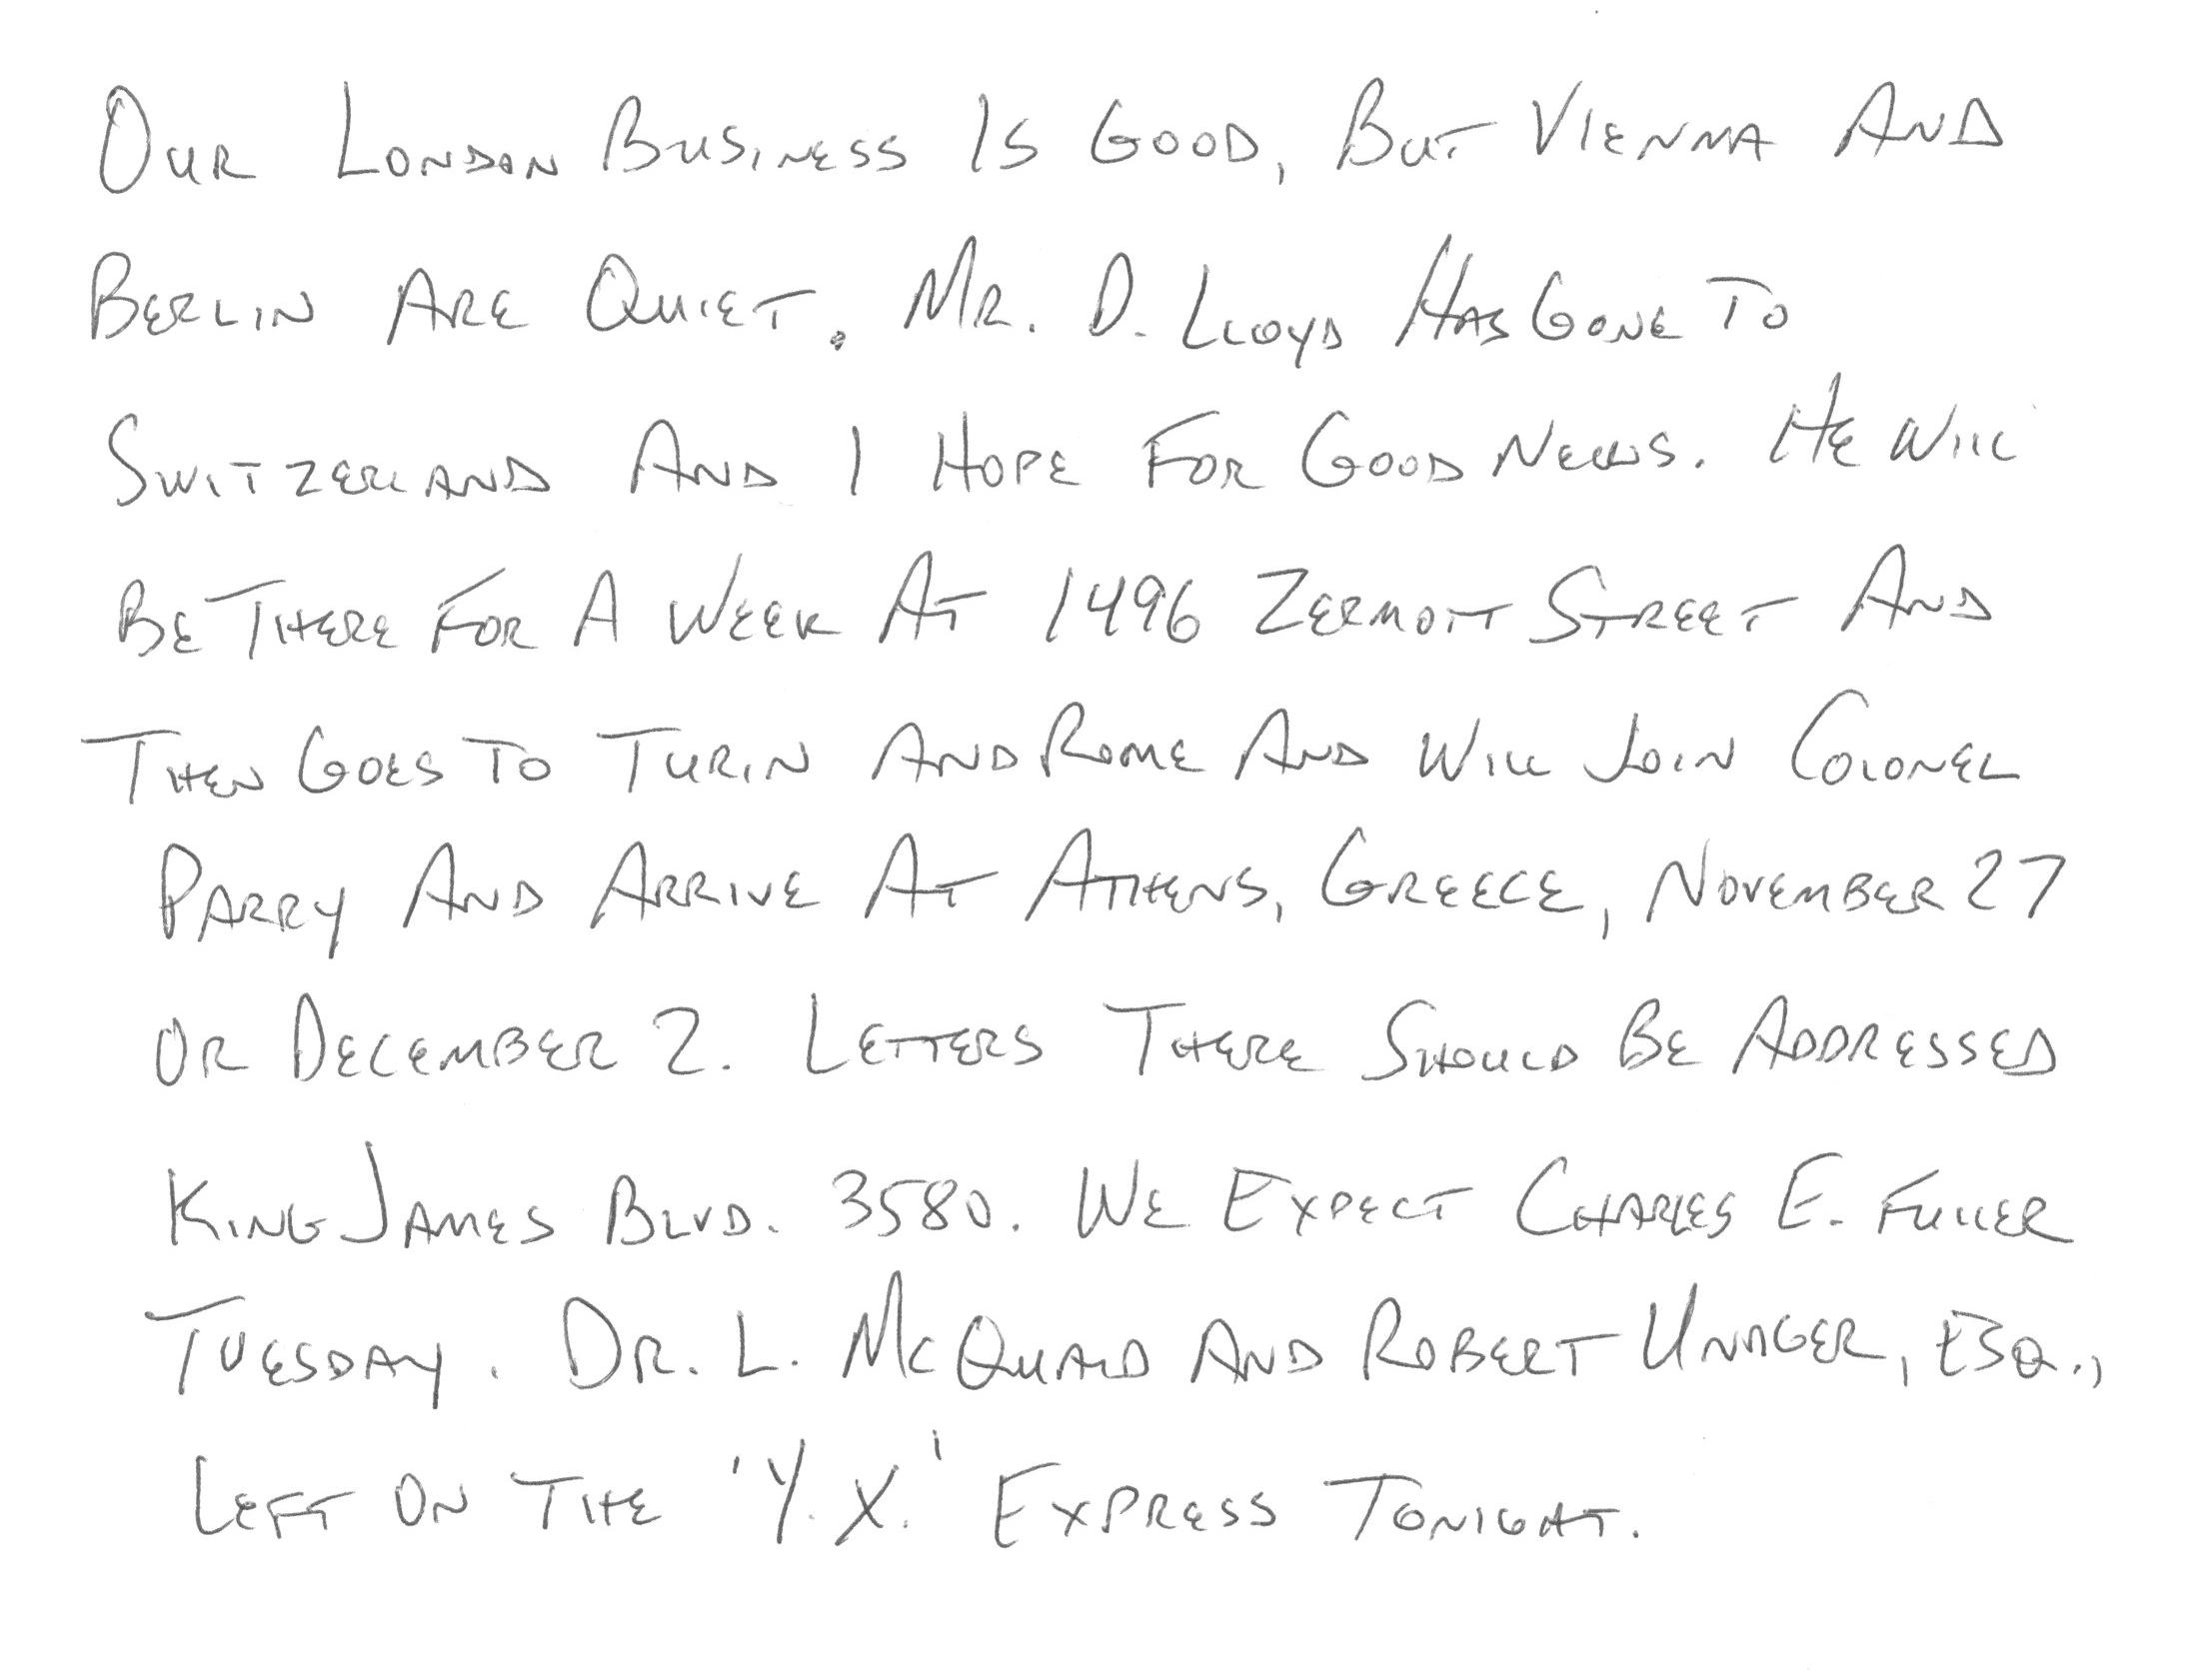 Our London Business Is Good, But Vienna And
Berlin Are Quiet. Mr. D. Lloyd Has Gone To
Switzerland And I Hope For Good News. He Will
Be There For A Week At 1496 Zermott Street And
Then Goes To Turin And Rome And Will Join Colonel
Parry And Arrive At Athens, Greece, November 27
or December 2. Letters There Should Be Addressed
King James Blvd. 3580. We Expect Charles E. Fuller
Tuesday. Dr. L. McQuaid And Robert Unager, Esq.,
Left On The 'Y.X.' Express Tonight.